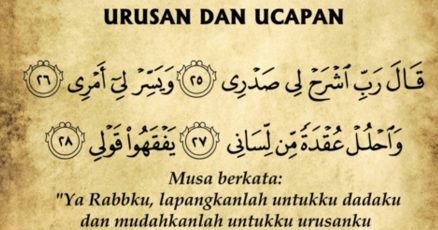 URUSAN DAN UCAPAN
قَالَ رَبِّ ٱشۡرَحۡ لِي صَدۡرِي ٢٥ وَيَسِّرۡ لِيٓ أَمۡرِي ٢٦
وَٱحۡلُلۡ عُقۡدَةٗ مِّن لِّسَانِي ٢٧ يَفۡقَهُواْ قَوۡلِي ٢٨
Musa berkata:
"Ya Rabbku, lapangkanlah untukku dadaku
dan mudahkanlah untukku urusanku